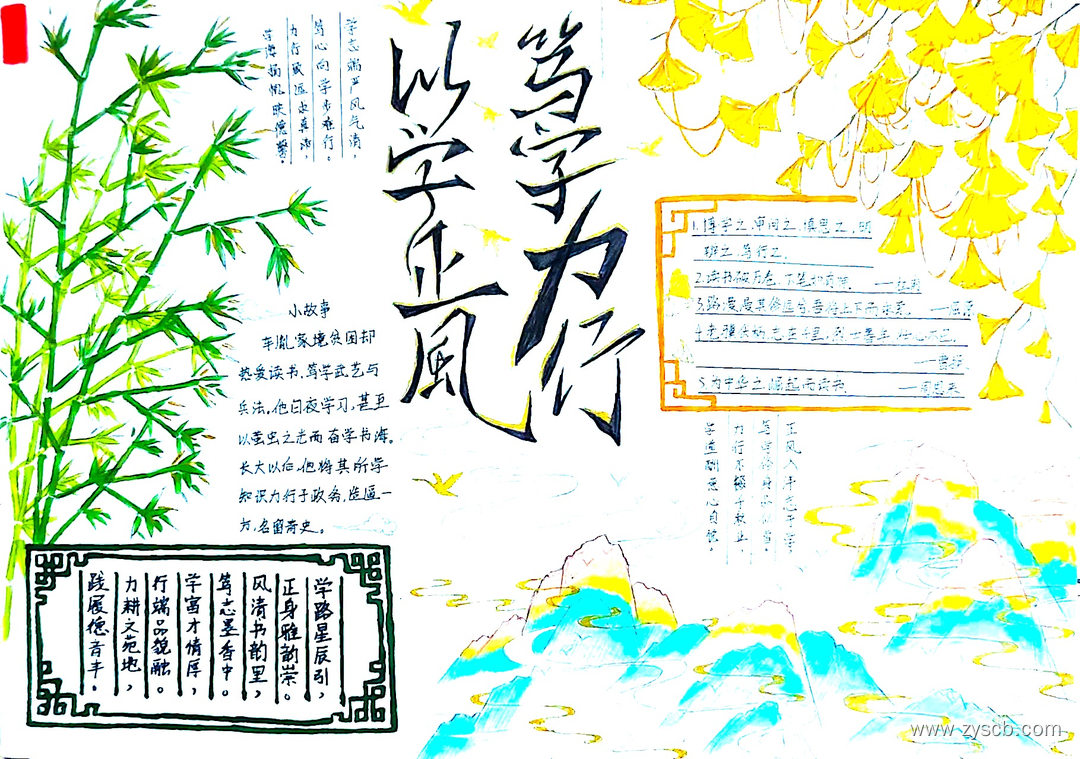 笃学力行
以学正風
学志端严风气清，
笃心向学步难行。
力行致远求真谛，
小故事
车胤家境贫困却
热爱读书、笃学武艺与
兵法，他日夜学习，甚至
以萤虫之光而奋学书海。
长大以后，他将其所学
知识力行于政务，造福一
方，名留青史。
1.博学之，审问之，慎思之，明
辨之，笃行之。
2.读书破万卷，下笔如有神。——杜甫
3.路漫漫其修远兮，吾将上下而求索。——屈原
4.老骥伏枥，志在千里，烈士暮年，壮心不已。
——曹操
5.为中华之崛起而读书。——周恩来
学路星辰引，
正身雅韵崇。
风清书韵里，
笃志墨香中。
学富才情厚，
行端品貌融。
力耕文苑地，
践履德音丰。
www.zyscb.com